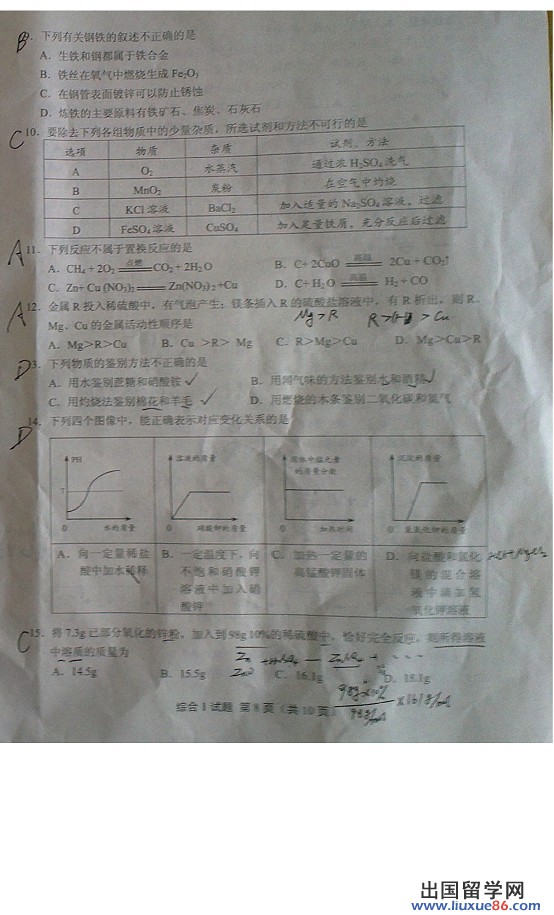 B 9. 下列有关钢铁的叙述不正确的是
A．生铁和钢都属于铁合金
B．铁丝在氧气中燃烧生成 Fe₂O₃
C．在钢管表面镀锌可以防止锈蚀
D．炼铁的主要原料有铁矿石、焦炭、石灰石
C 10．要除去下列各组物质中的少量杂质，所选试剂和方法不可行的是
选项 物质 杂质 试剂、方法
A O₂ 水蒸汽 通过浓 H₂SO₄ 洗气
B MnO₂ 炭粉 在空气中灼烧
C KCl 溶液 BaCl₂ 加入适量的 Na₂SO₄ 溶液，过滤
D FeSO₄ 溶液 CuSO₄ 加入足量铁质，充分反应后过滤
A 11．下列反应不属于置换反应的是
A．CH₄ + 2O₂ 点燃 CO₂ + 2H₂O B．C+ 2CuO 高温 2Cu + CO₂↑
C．Zn+ Cu (NO₃)₂ Zn(NO₃)₂ +Cu D．C+ H₂O 高温 H₂ + CO
A 12．金属 R 投入稀硫酸中，有气泡产生；镁条插入 R 的硫酸盐溶液中，有 R 析出，则 R、
Mg>R R>H>Cu
Mg、Cu 的金属活动性顺序是
A．Mg＞R＞Cu B．Cu ＞R＞ Mg C．R＞Mg＞Cu D．Mg＞Cu＞R
D 3．下列物质的鉴别方法不正确的是
A．用水鉴别蔗糖和硝酸铵 ✓ B．用闻气味的方法鉴别水和酒精 ✓
C．用灼烧法鉴别棉花和羊毛 ✓ D．用燃烧的木条鉴别二氧化碳和氮气
D 14．下列四个图像中，能正确表示对应变化关系的是
PH 7 0 水的质量
溶液的质量 0 硝酸钾的质量
固体中锰元素的质量分数 0 加热时间
沉淀的质量 0 氢氧化钾的质量
A．向一定量稀盐酸中加水稀释
B．一定温度下，向不饱和硝酸钾溶液中加入硝酸钾
C．加热一定量的高锰酸钾固体
D．向盐酸和氯化镁的混合溶液中滴加氢氧化钾溶液
C 15．将 7.3g 已部分氧化的锌粉，加入到 98g 10%的稀硫酸中，恰好完全反应，则所得溶液
中溶质的质量为
A．14.5g B．15.5g C．16.1g D．18.1g
综合Ⅰ试题 第 8 页（共 10 页）
出国留学网
www.liuxue86.com